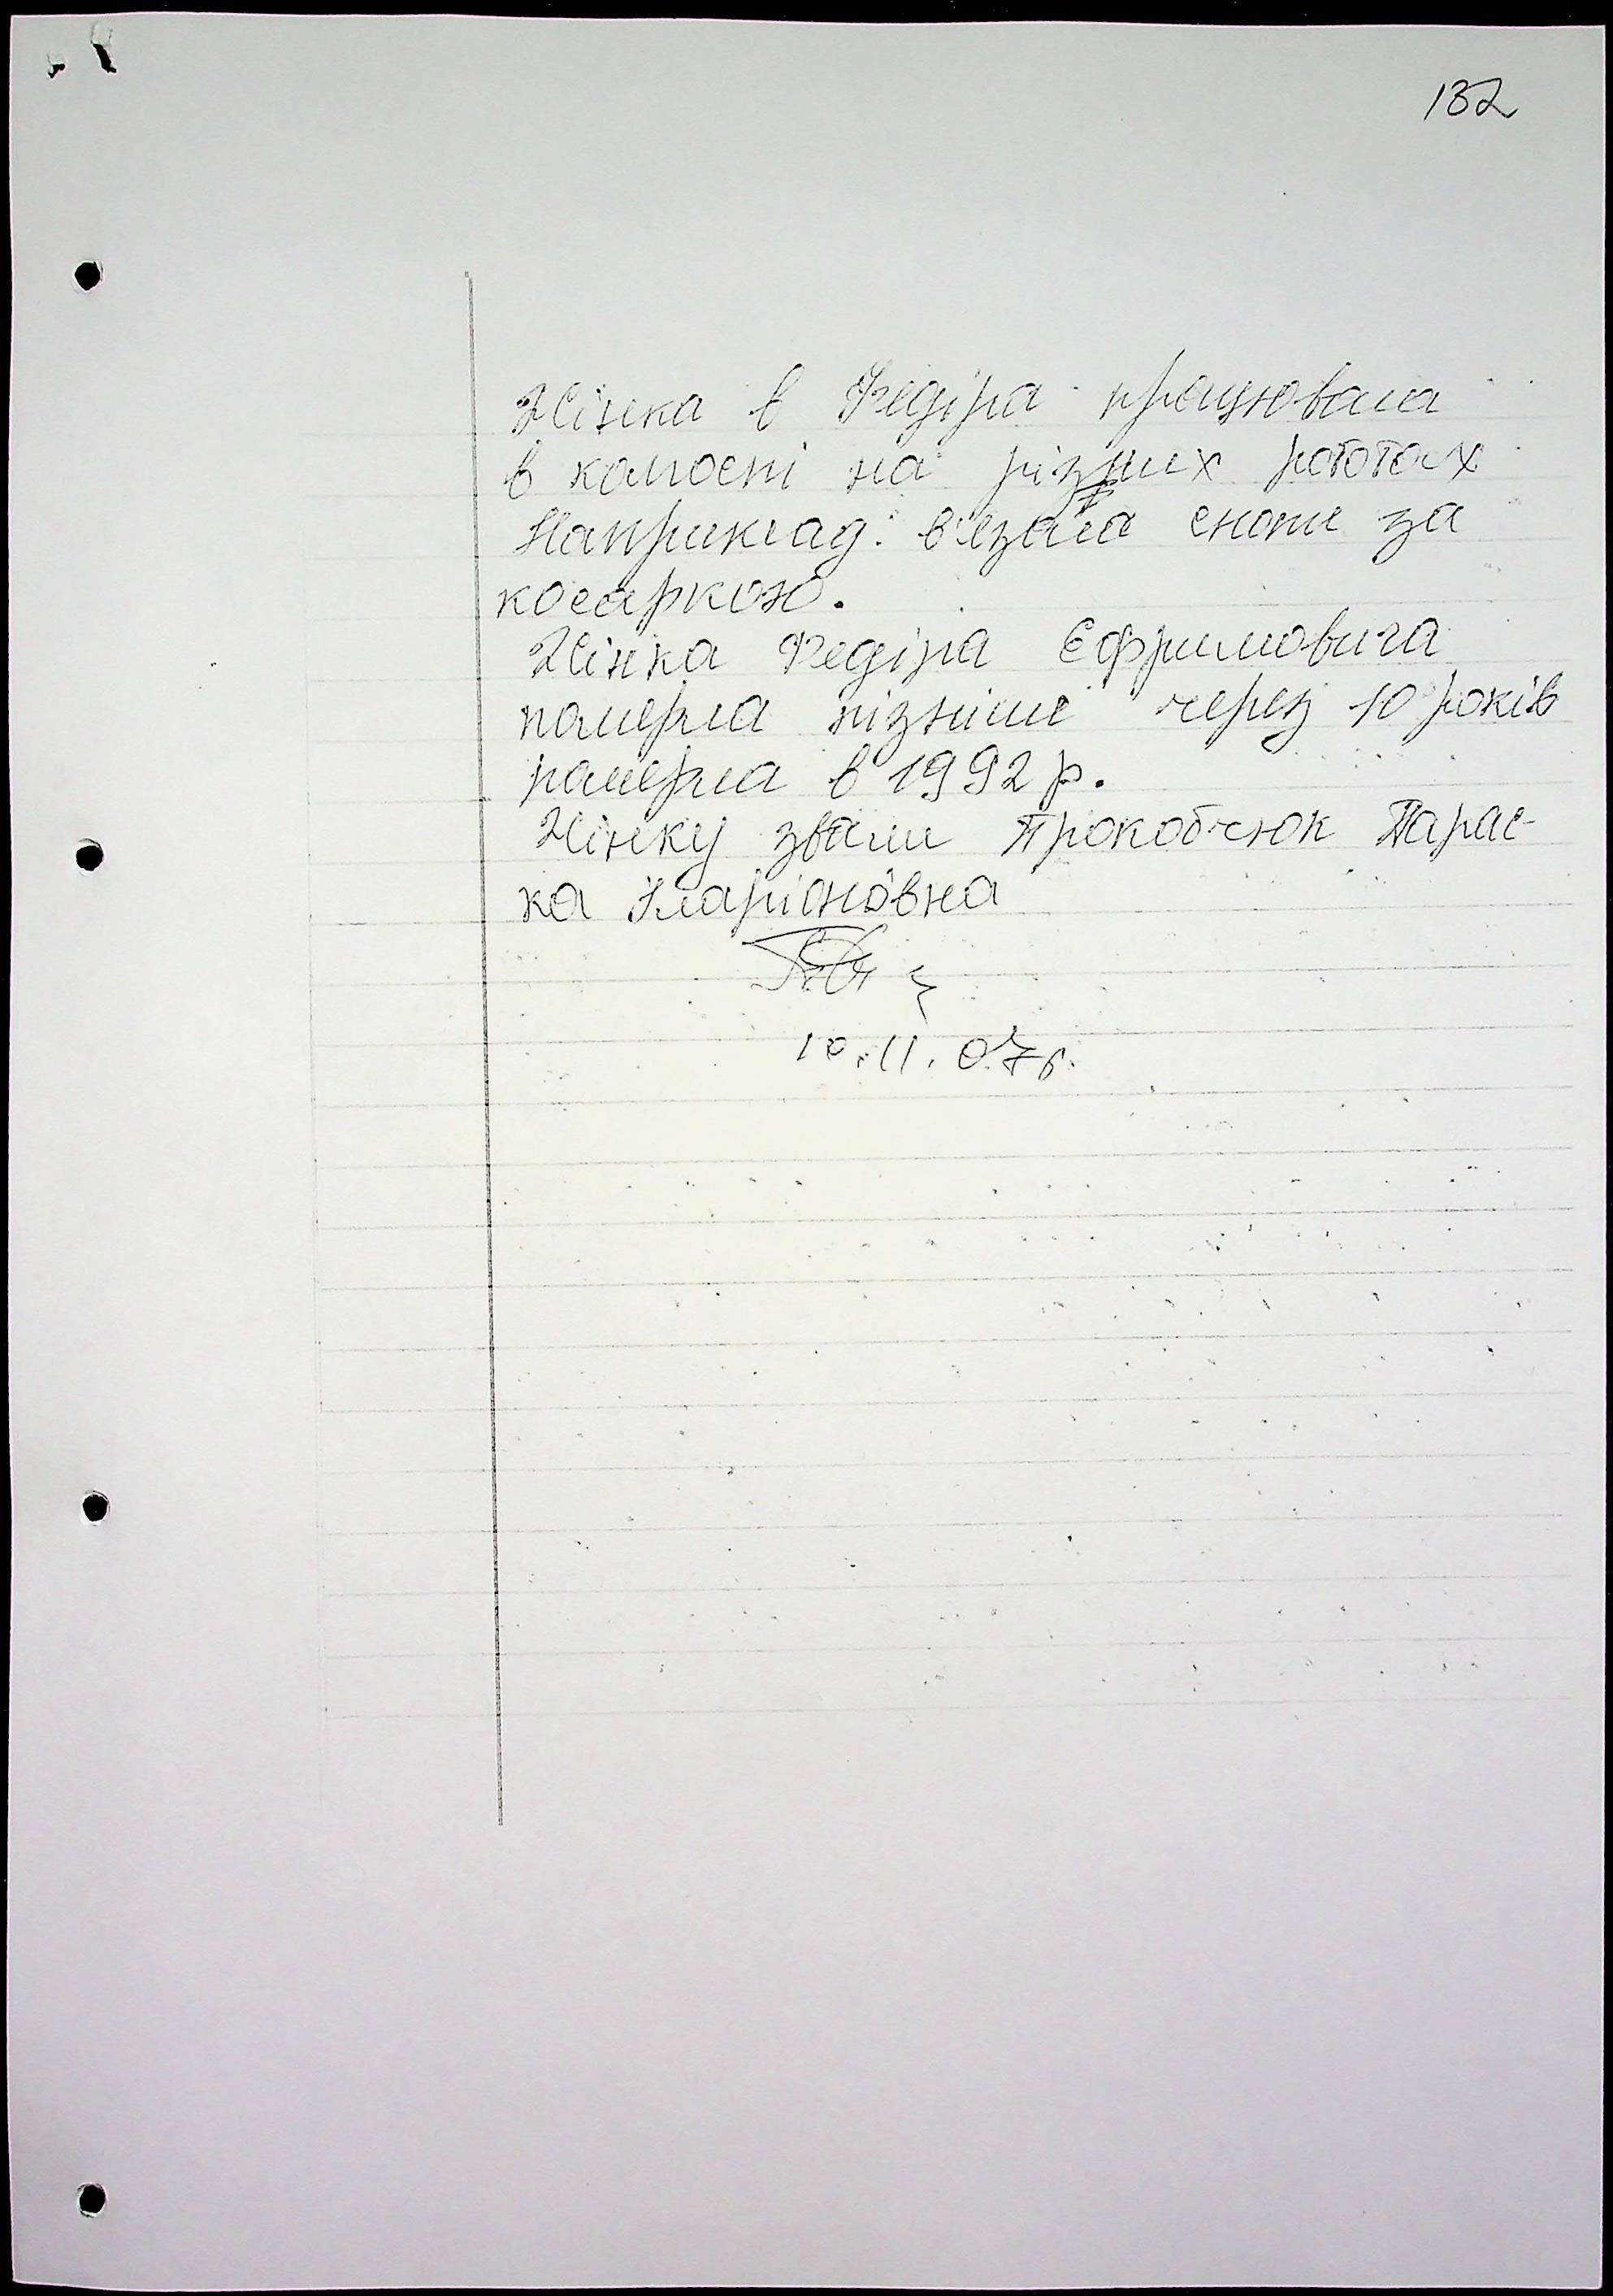 132
Жінка в Федіра працювала
в колгоспі на різних роботах
Наприклад: в'язала снопи за
косаркою.
Жінка Федіра Єфримовича
померла пізніше через 10 років
померла в 1992 р.
Жінку звали Прокобчюк Парас-
ка Іларіоновна
10.11.07р.